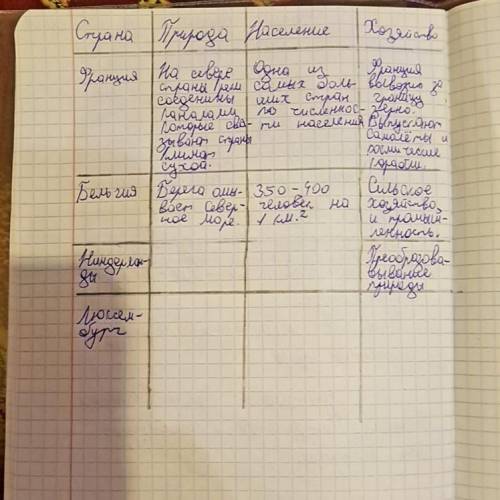 Страна Природа Население Хозяйство
Франция
На севере
страны реки
соединены
каналами,
которые свя-
зывают страны
Климат
сухой.
Одна из
самых боль-
ших стран
по численнос-
ти населения
Франция
вывозит за
границу
зерно.
Выпускают
самолёты и
космические
корабли.
Бельгия
Берега омы-
вает Север-
ное море.
350-400
человек на
1 км.²
Сильское
хозяйство
и промыш-
ленность.
Нидерлан-
ды
Преобразова-
вывание
природы
Люксем-
бург